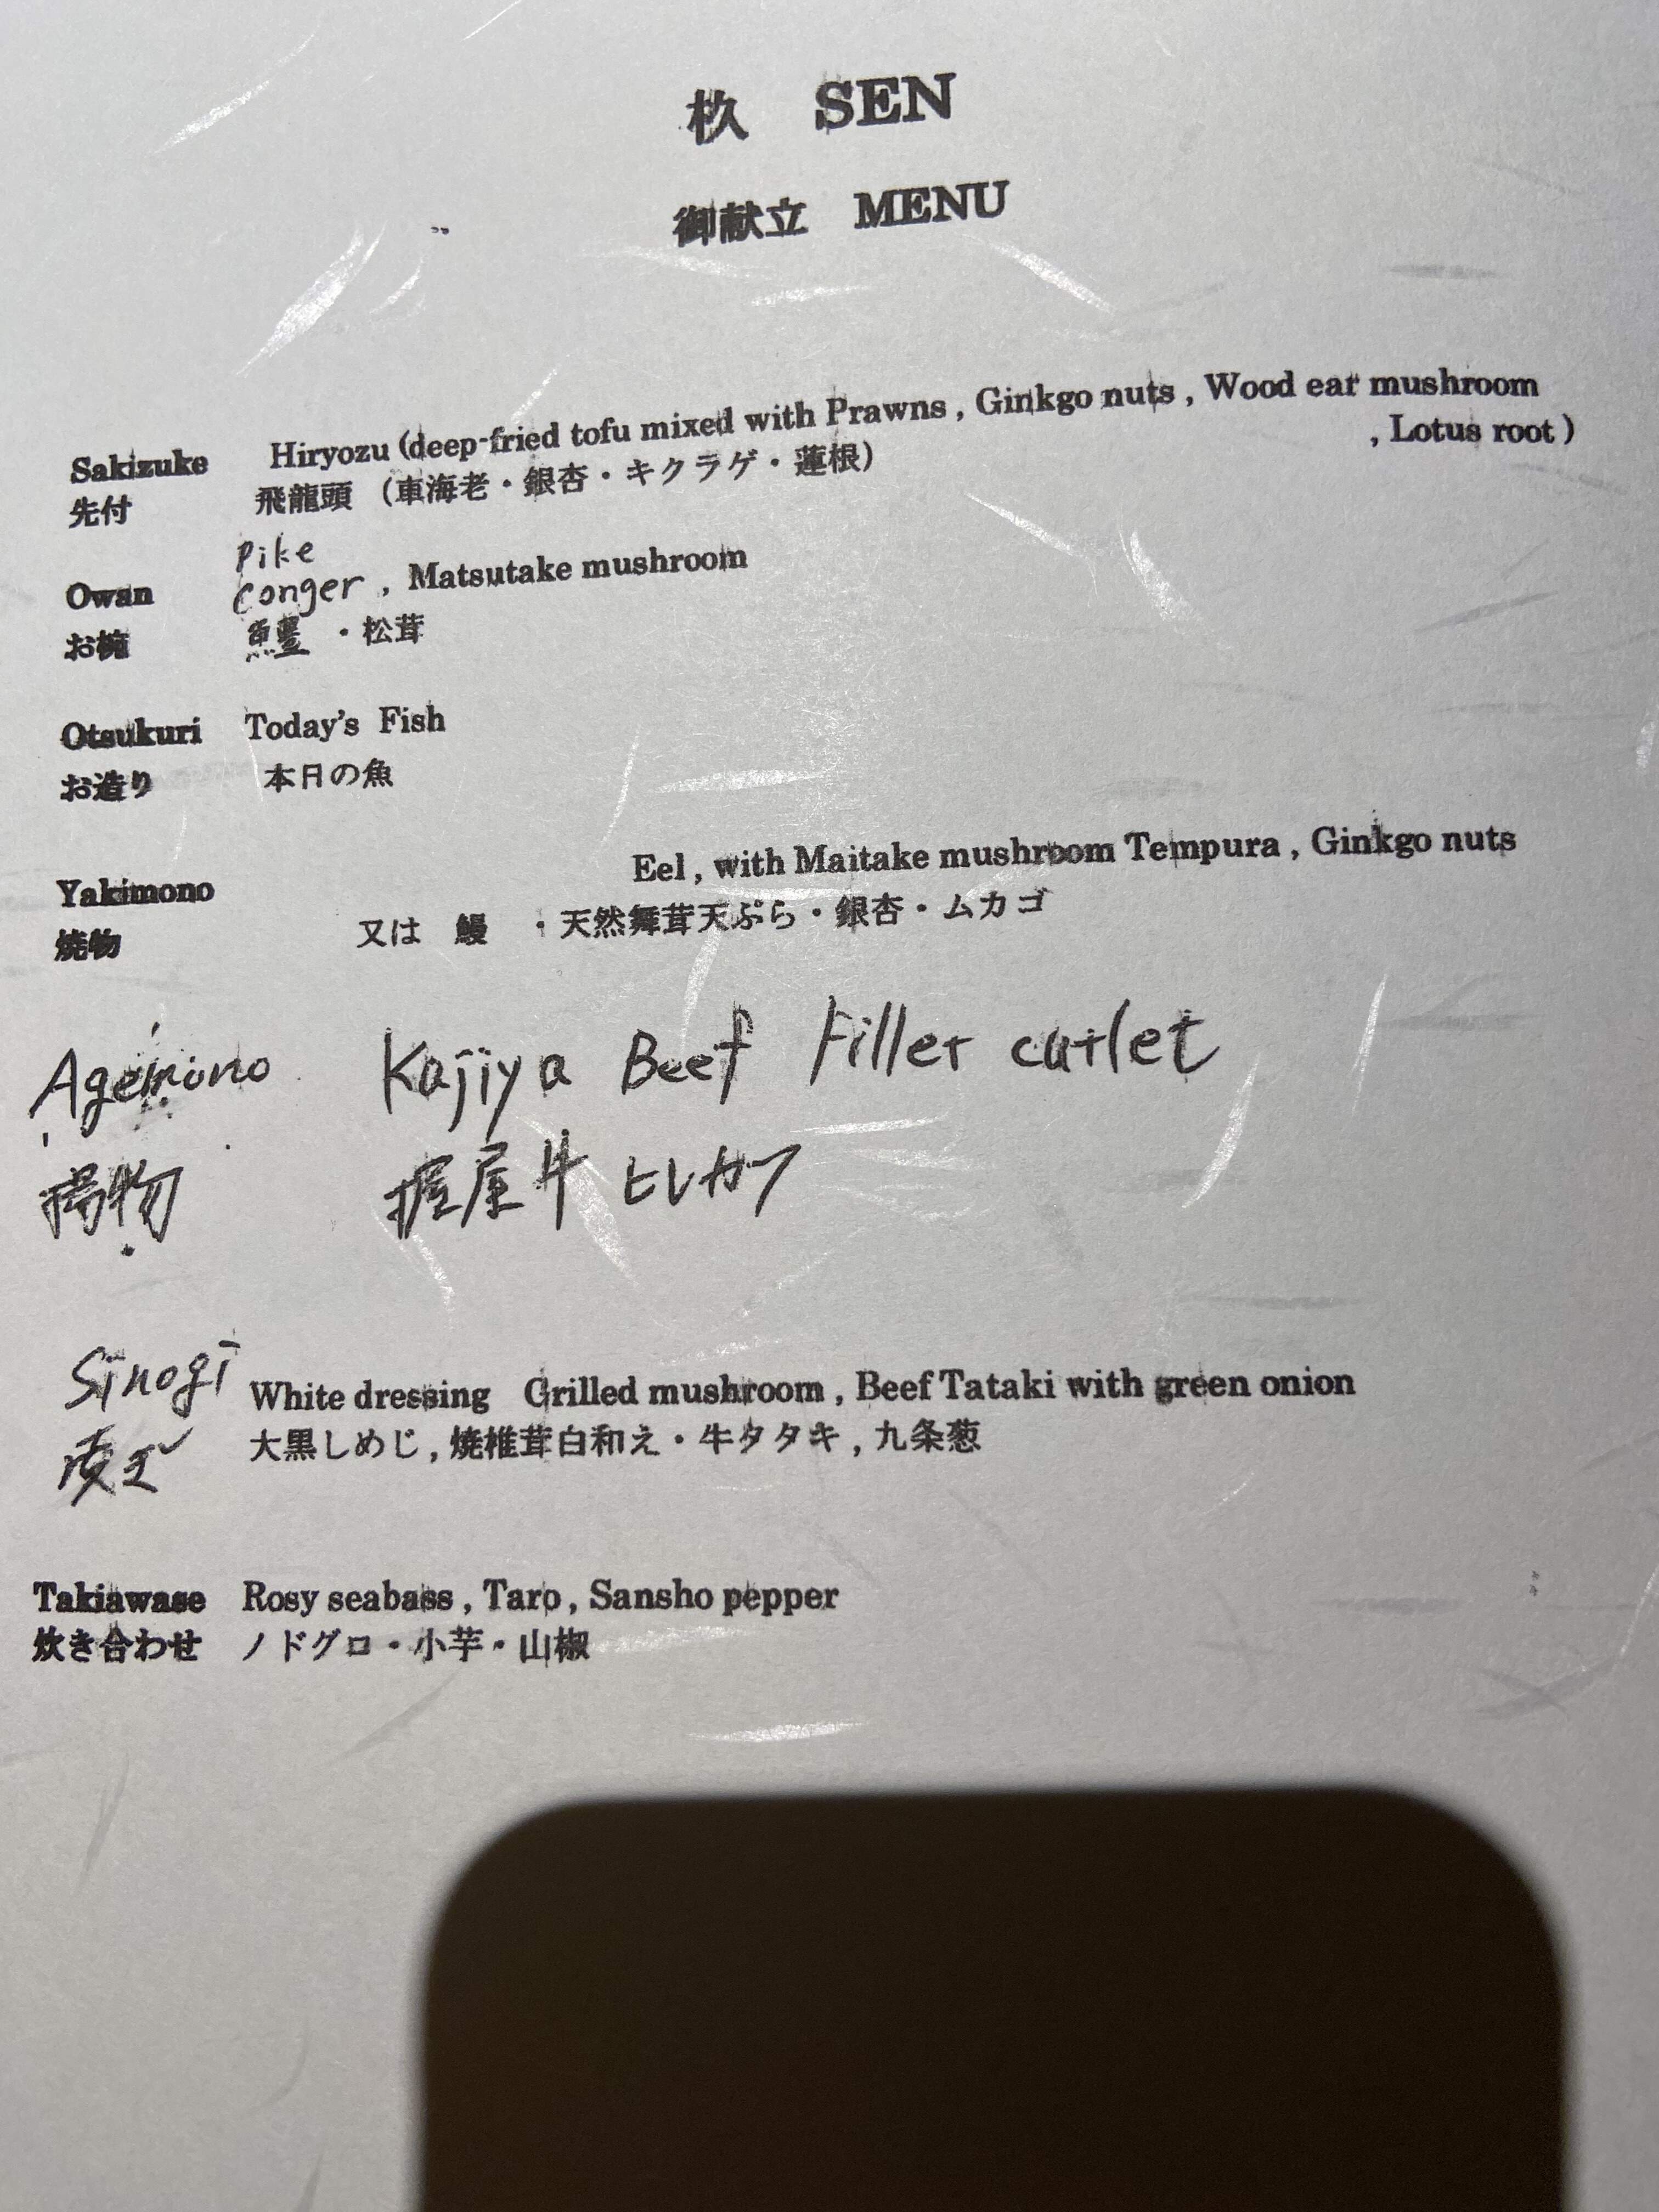 杦 SEN
御献立 MENU
Sakizuke Hiryozu (deep-fried tofu mixed with Prawns , Ginkgo nuts , Wood ear mushroom
, Lotus root )
先付 飛龍頭 (車海老・銀杏・キクラゲ・蓮根)
Pike
Owan Conger , Matsutake mushroom
お椀 鱧 ・松茸
Otsukuri Today's Fish
お造り 本日の魚
Yakimono Eel , with Maitake mushroom Tempura , Ginkgo nuts
焼物 又は 鰻 ・天然舞茸天ぷら・銀杏・ムカゴ
Agemono Kajiya Beef Fillet cutlet
揚物 屋牛 ヒレカツ
Sinogi White dressing Grilled mushroom , Beef Tataki with green onion
凌ぎ 大黒しめじ , 焼椎茸白和え・牛タタキ , 九条葱
Takiawase Rosy seabass , Taro , Sansho pepper
炊き合わせ ノドグロ・小芋・山椒